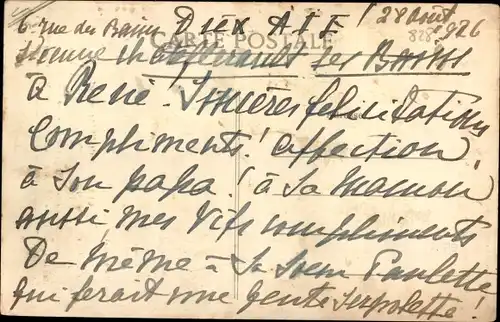 6 rue des Bains DIEX AIE ! 28 Août 1926
CARTE POSTALE
les Bains
a René. Sincères félicitations
Compliments ! affection,
à son papa ! à sa maman
aussi mes vifs compliments
De même à sa soeur Paulette
qui ferait une gente serpolette !